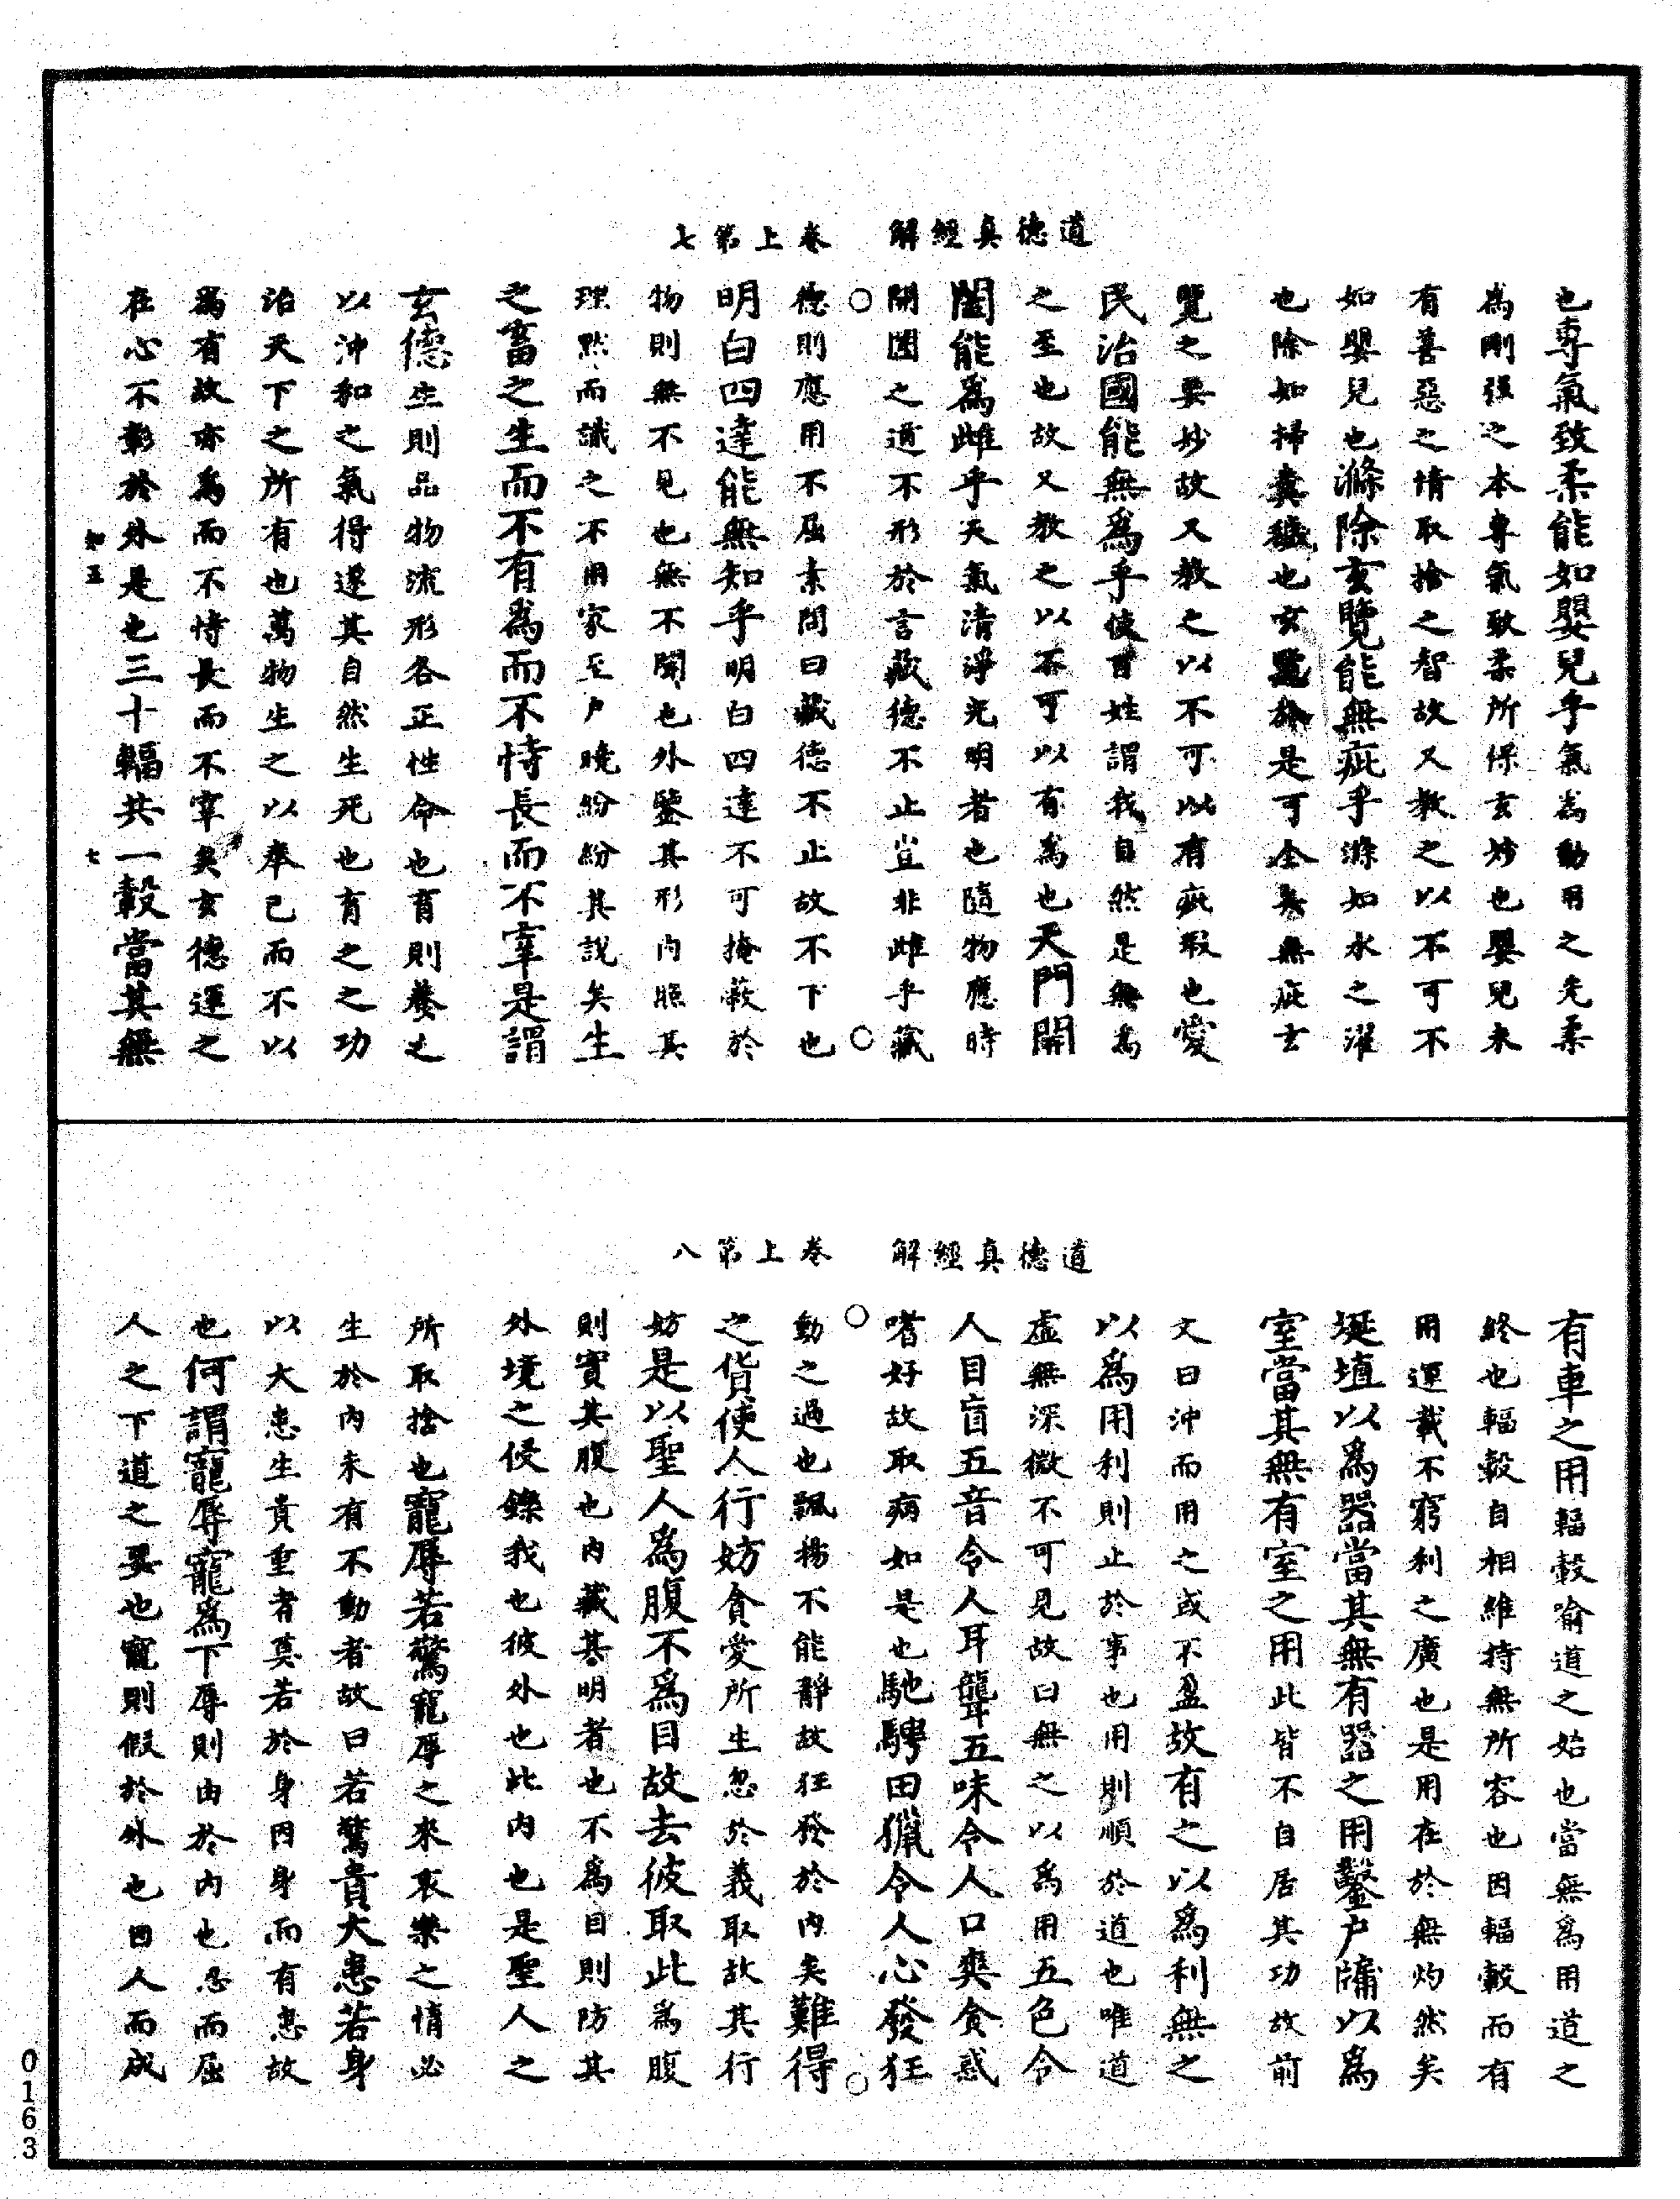 道德真經解　卷上第七
也專氣致柔能如嬰兒乎氣為動用之先柔
為剛強之本專氣致柔所保玄妙也嬰兒未
有善惡之情取捨之智故又教之以不可不
如嬰兒也滌除玄覽能無疵乎滌如水之濯
也除如掃糞穢也玄覽於是可全真無疵玄
覽之要妙故又教之以不可以有疵瑕也愛
民治國能無為乎使百姓謂我自然是無為
之至也故又教之以不可以有為也天門開
闔能為雌乎天氣清淨光明者也隨物應時
開闔之道不形於言藏德不止豈非雌乎藏
德則應用不屈素問曰藏德不止故不下也
明白四達能無知乎明白四達不可掩蔽於
物則無不見也無不聞也外鑒其形內照其
理默而識之不用家至戶曉紛紛其說矣生
之畜之生而不有為而不恃長而不宰是謂
玄德生則品物流形各正性命也育則養之
以沖和之氣得遂其自然生死也育之之功
治天下之所有也萬物生之以奉己而不以
為有故亦為而不恃長而不宰矣玄德運之
在心不彰於外是也三十輻共一轂當其無
知五　七
道德真經解　卷上第八
有車之用輻轂喻道之始也當無為用道之
終也輻轂自相維持無所容也因輻轂而有
用運載不窮利之廣也是用在於無灼然矣
埏埴以為器當其無有器之用鑿戶牖以為
室當其無有室之用此皆不自居其功故前
文曰沖而用之或不盈故有之以為利無之
以為用利則止於事也用則順於道也唯道
虛無深微不可見故曰無之以為用五色令
人目盲五音令人耳聾五味令人口爽貪惑
嗜好故取病如是也馳騁田獵令人心發狂
動之過也飄揚不能靜故狂發於內矣難得
之貨使人行妨貪愛所生忽於義取故其行
妨是以聖人為腹不為目故去彼取此為腹
則實其腹也內藏其明者也不為目則防其
外境之侵鑠我也彼外也此內也是聖人之
所取捨也寵辱若驚寵辱之來哀樂之情必
生於內未有不動者故曰若驚貴大患若身
以大患生貴重者莫若於身因身而有患故
也何謂寵辱寵為下辱則由於內也忍而屈
人之下道之要也寵則假於外也因人而成
0163